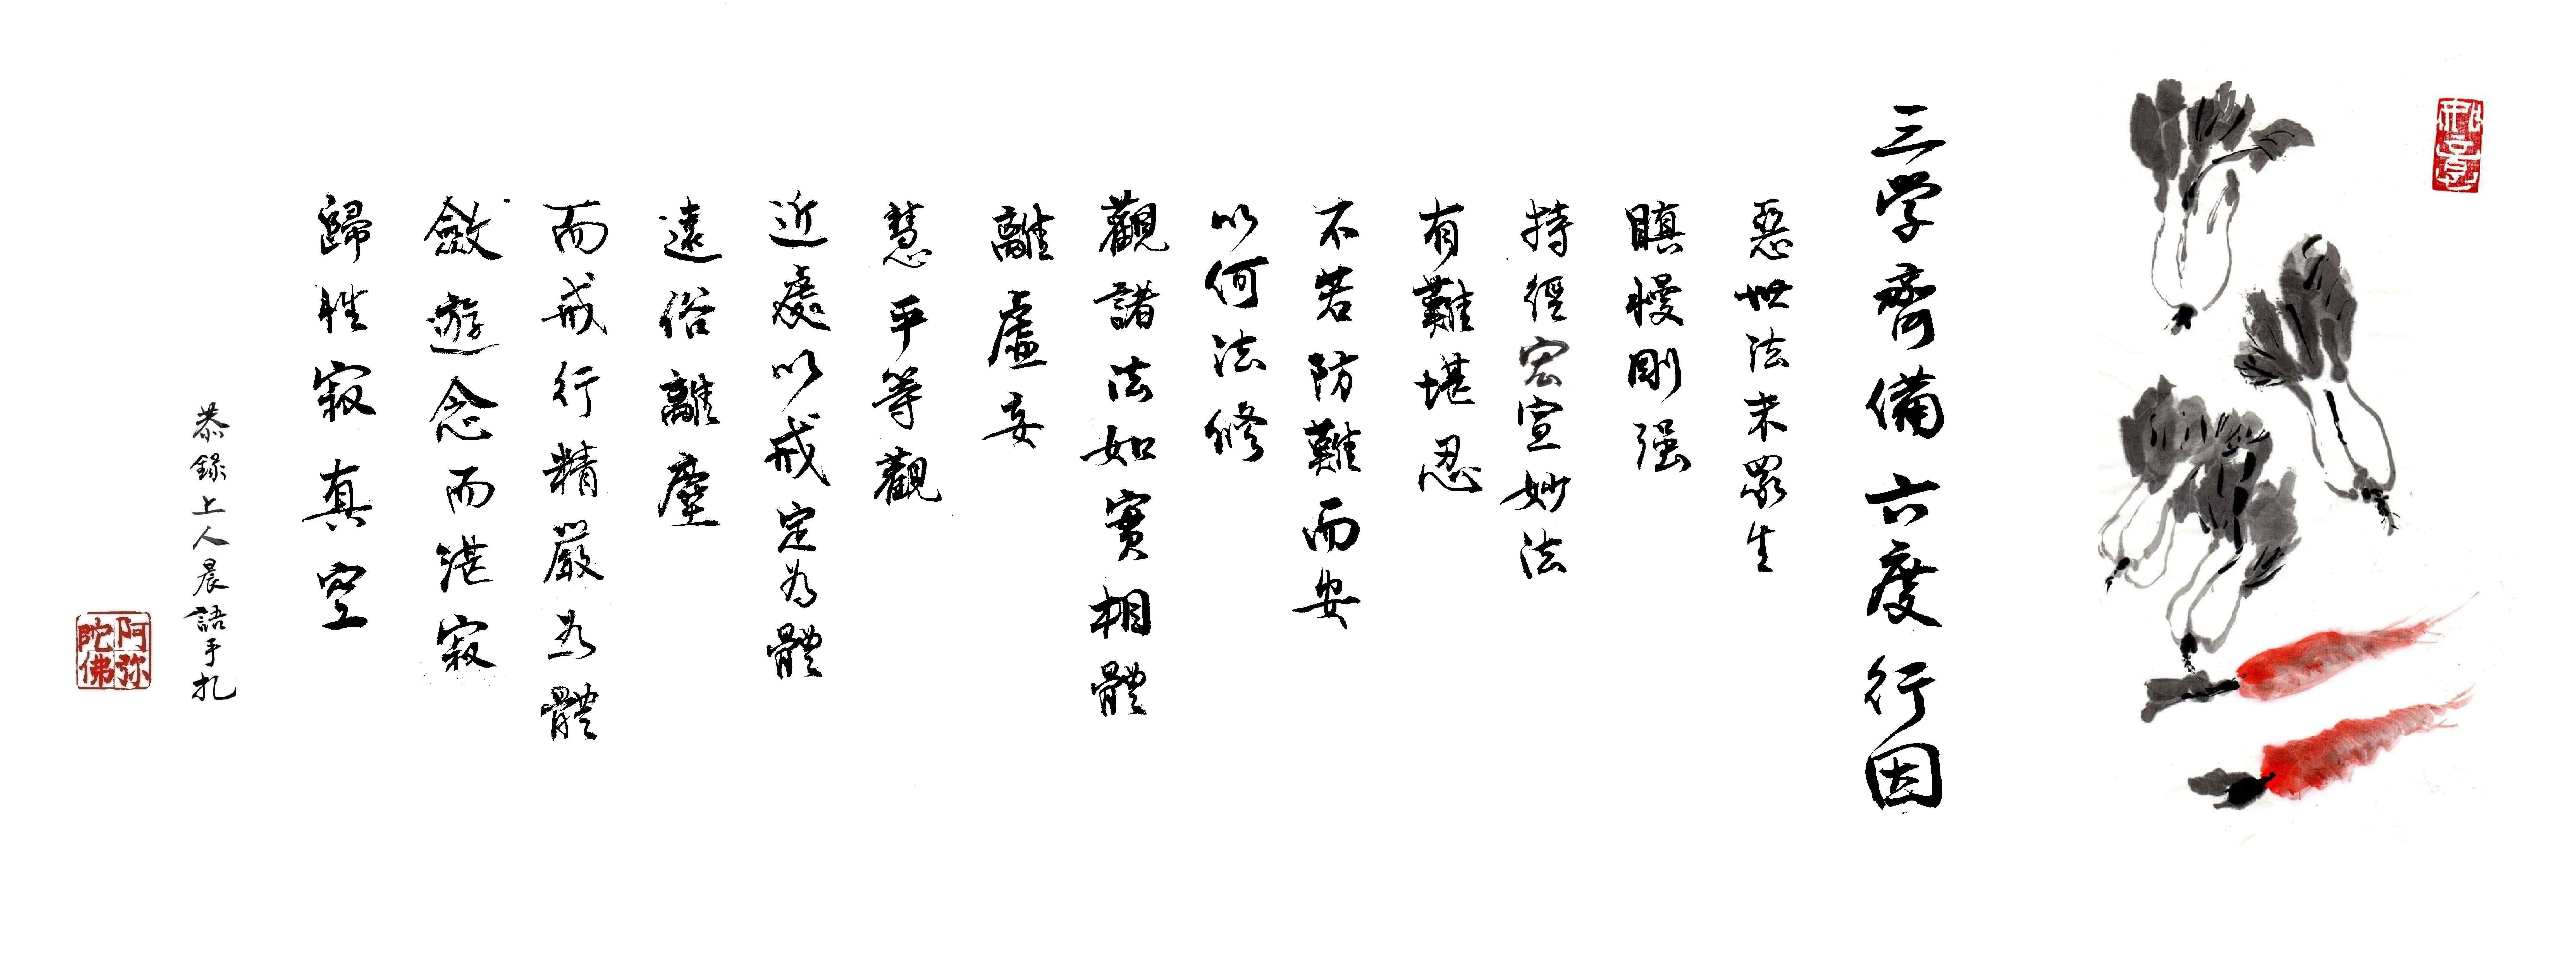 三学齊備六度行因
惡世法末眾生
瞋慢剛强
持經宏宣妙法
有難堪忍
不若防難而安
以何法修
觀諸法如實相體
離虛妄
慧平等觀
近處以戒定為體
遠俗離塵
而戒行精嚴為體
斂遊念而湛寂
歸性寂真空
恭錄上人晨語手札
阿弥陀佛